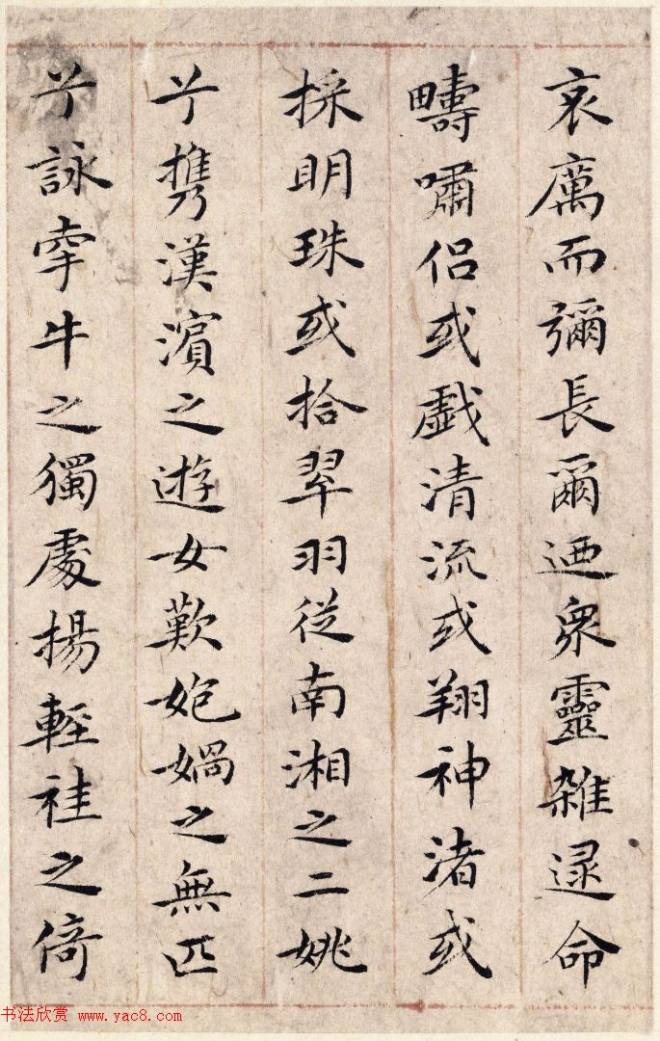 哀厲而彌長爾迺衆靈雜逯命
疇嘯侶或戲清流或翔神渚或
採明珠或拾翠羽從南湘之二姚
兮攜漢濱之遊女歎妑媧之無匹
兮詠牽牛之獨處揚輕袿之倚
书法欣赏 www.yac8.com